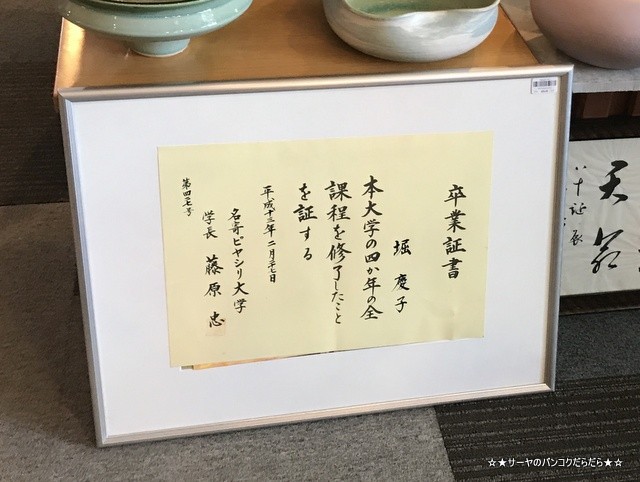 卒業証書
堀 慶子
本大学の四か年の全
課程を修了したこと
を証する
平成十三年二月二十七日
名寄ピヤシリ大学
学長 藤原 忠
天
八十誕
☆★サーヤのバンコクだらだら★☆